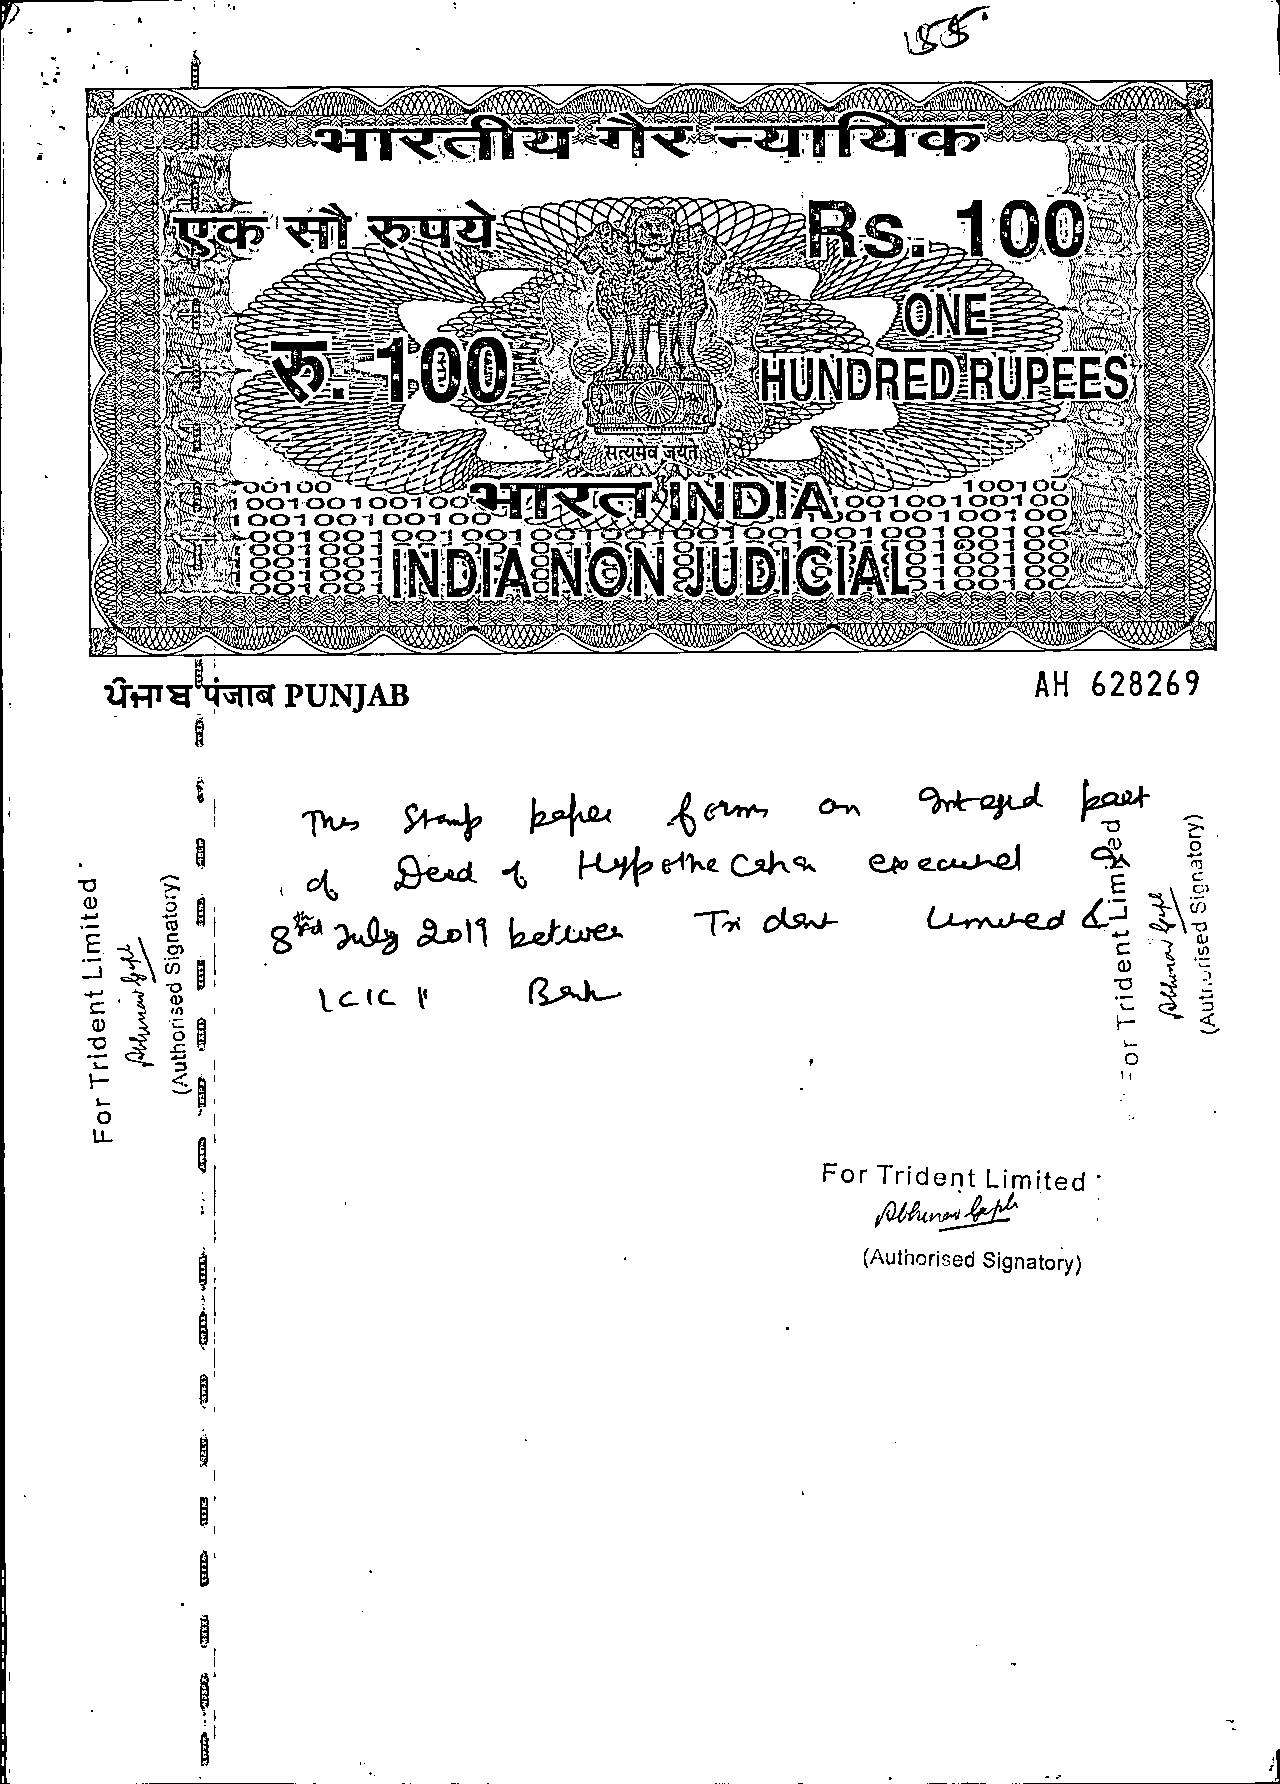 भारतीय गैर न्यायिक
एक सौ रुपये
Rs. 100
रु. 100
ONE
HUNDRED RUPEES
सत्यमेव जयते
भारत INDIA
INDIA NON JUDICIAL
ਪੰਜਾਬ पंजाब PUNJAB
AH 628269
This Stamp paper forms an Integral part
of Deed of Hypothecation executed on
8th July 2019 between Trident Limited &
ICICI Bank
For Trident Limited
Abhinav Gupta
(Authorised Signatory)
For Trident Limited
Abhinav Gupta
(Authorised Signatory)
For Trident Limited
Abhinav Gupta
(Authorised Signatory)